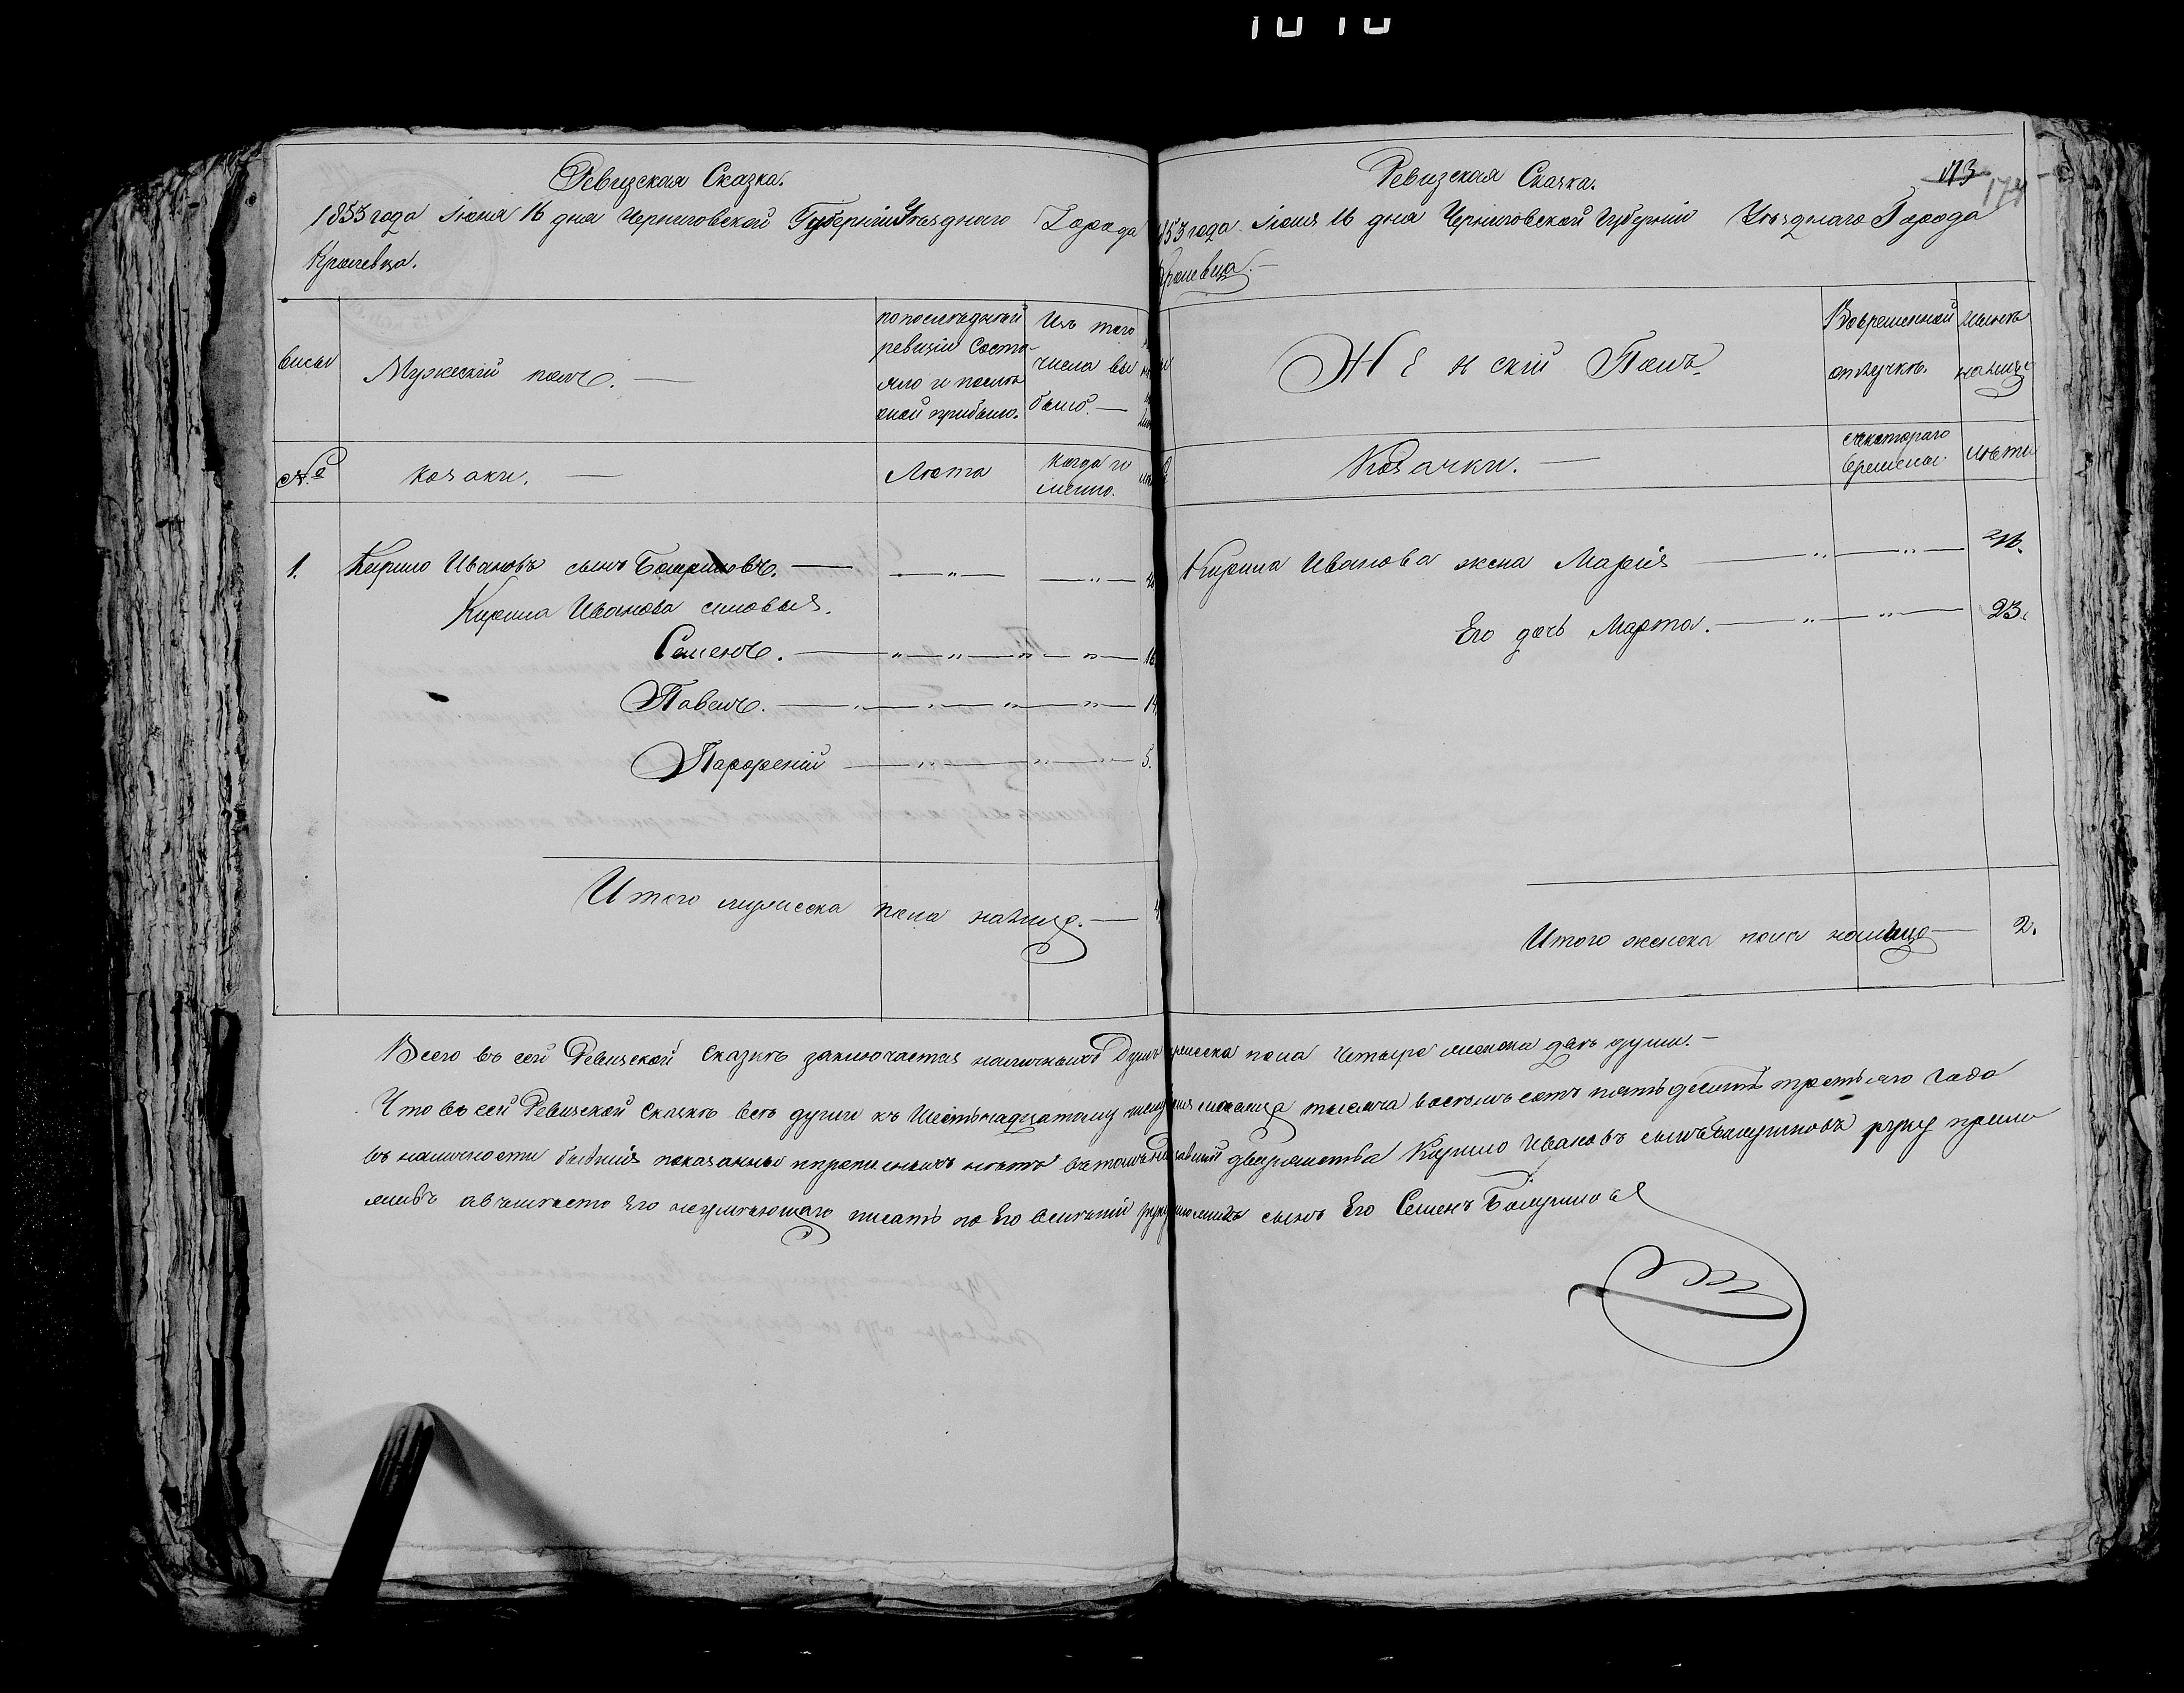 Ревизская Сказка.
1853 года Іюня 16 дня Черниговской Губерніи Уѣзднаго Города
Кролевца.
Мужескій полъ. —
попослѣдней
ревизіи состо
яло и послѣ
оной прибыло.
Изъ того
числа вы
было. —
№
козаки. —
Лѣта
когда и
менно.
1. Кирило Ивановъ сынъ —
Кирила Иванова сыновья.
Семенъ. — 16
Павелъ. — 14
Парфеній — 5.
Итого мужеска пола налицо. — 4
Ревизская Сказка.
113
174
1853 года Іюня 16 дня Черниговской Губерніи Уѣзднаго Города
Кролевца. —
Женскій Полъ.
Вовременной
отлучкѣ.
нынѣ
налицо
Козачки. —
съкотораго
времени
лѣта
Кирила Иванова жена Марія — 46.
Его дочь Марта. — 23.
Итого женска пола налицо — 2.
Всего въ сей Ревизской Сказкѣ заключается наличныхъ Душъ мужеска пола четыре женска двѣ души. —
Что въ сей Ревизской Сказкѣ всѣ души къ Шестьнадцатому числу Іюня мѣсяца тысяча восемь сотъ пятьдесятъ третьяго Года
въ наличности бывшія показанны ипрописныхъ нѣтъ вътомъ дворянства Кирило Ивановъ сынъ руку прило
жилъ авъмѣсто Его неумѣющаго писать по Его велѣнію руку приложилъ сынъ Его Семенъ